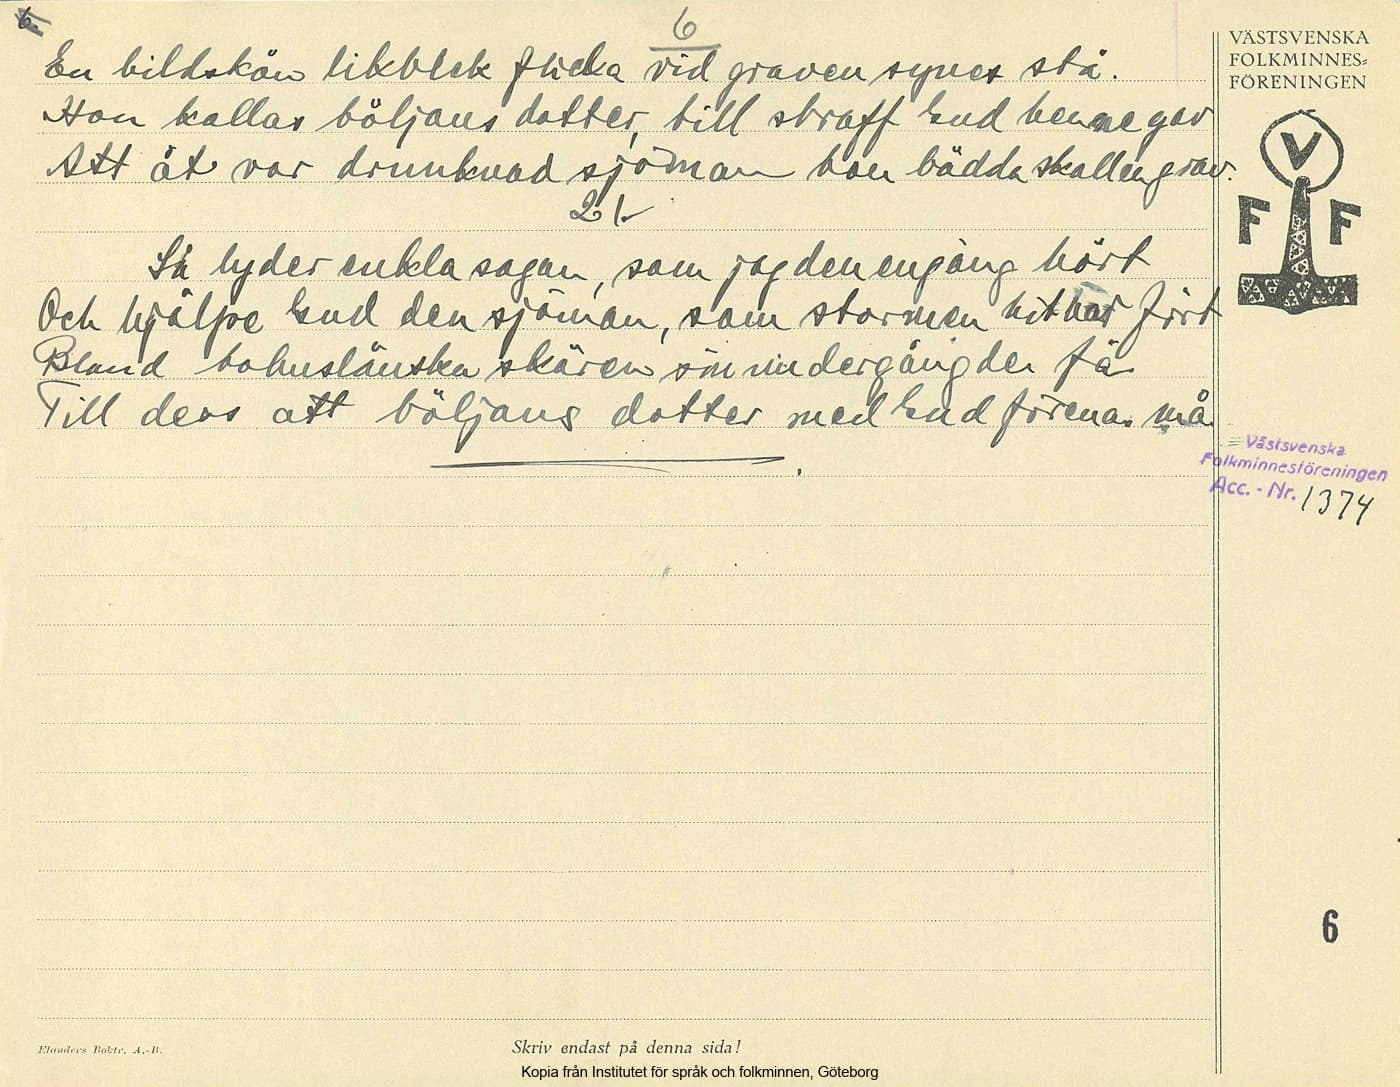 6.
6
En bildskön likblek flicka vid graven synes stå.
Hon kallas böljans dotter, till straff Gud henne gav
Att åt var drunknad sjöman hon bädda skall en grav.
21.
Så lyder enkla sagan, som jag den engång hört
Och hjälpe Gud den sjöman, som stormen hit har fört
Bland bohuslänska skären sin undergång den få
Till dess att böljans dotter med Gud förenas må.
VÄSTSVENSKA
FOLKMINNES=
FÖRENINGEN
V
F F
Västsvenska
Folkminnesföreningen
Acc. - Nr. 1374
6
Elanders Boktr. A.-B.
Skriv endast på denna sida!
Kopia från Institutet för språk och folkminnen, Göteborg